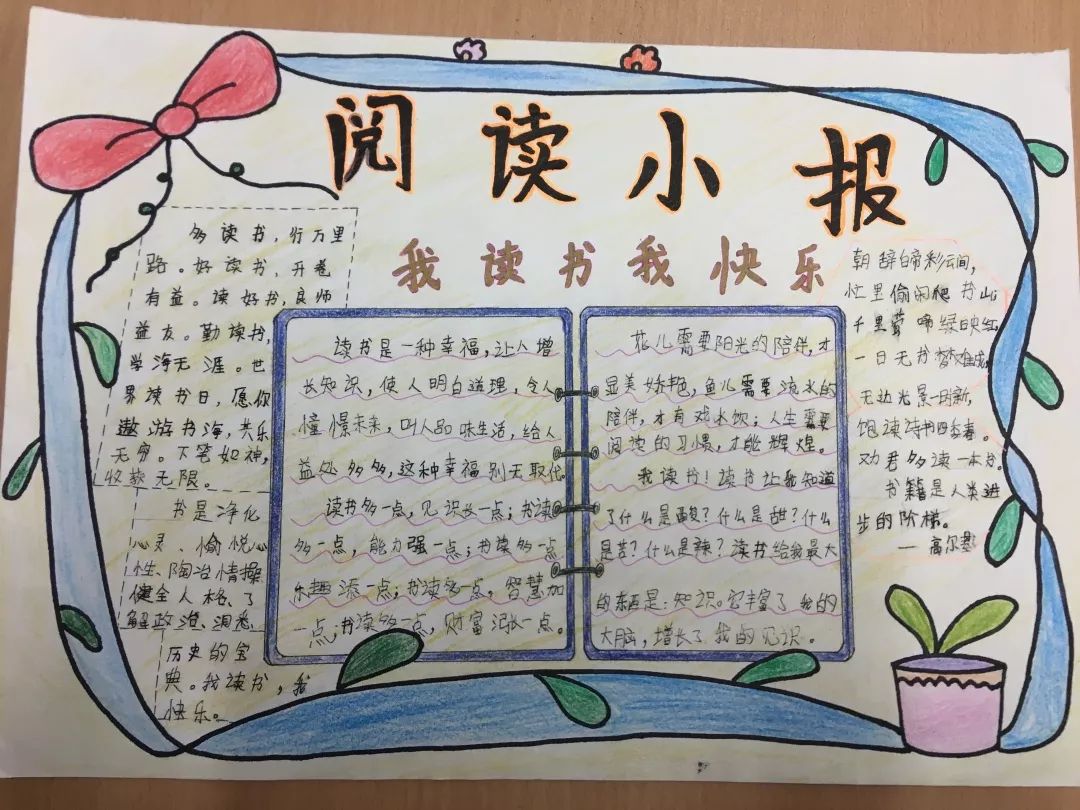 阅读小报
我读书我快乐
多读书，行万里
路。好读书，开卷
有益。读好书，良师
益友。勤读书，
学海无涯。世
界读书日，愿你
遨游书海，共乐
无穷。下笔如神，
收获无限。
书是净化
心灵、愉悦心
性、陶冶情操
健全人格、了
解政治、洞悉
历史的宝
典。我读书，我
快乐。
读书是一种幸福，让人增
长知识，使人明白道理，令人
憧憬未来，叫人品味生活，给人
益处多多，这种幸福别无取代
读书多一点，见识长一点；书读
多一点，能力强一点；书读多一点
乐趣添一点；书读多一点，智慧加
一点；书读多一点，财富涨一点。
花儿需要阳光的陪伴，才
显美好艳，鱼儿需要流水的
陪伴，才有戏水饮；人生需要
阅读的习惯，才能辉煌。
我读书！读书让我知道
了什么是酸？什么是甜？什么
是苦？什么是辣？读书给我最大
的东西是：知识。它丰富了我的
大脑，增长了我的见识。
朝辞白帝彩云间，
忙里偷闲爬书山
千里莺啼绿映红
一日无书梦难成
无边光景一时新，
饱读诗书四季春。
劝君多读一本书。
书籍是人类进
步的阶梯。
—高尔基